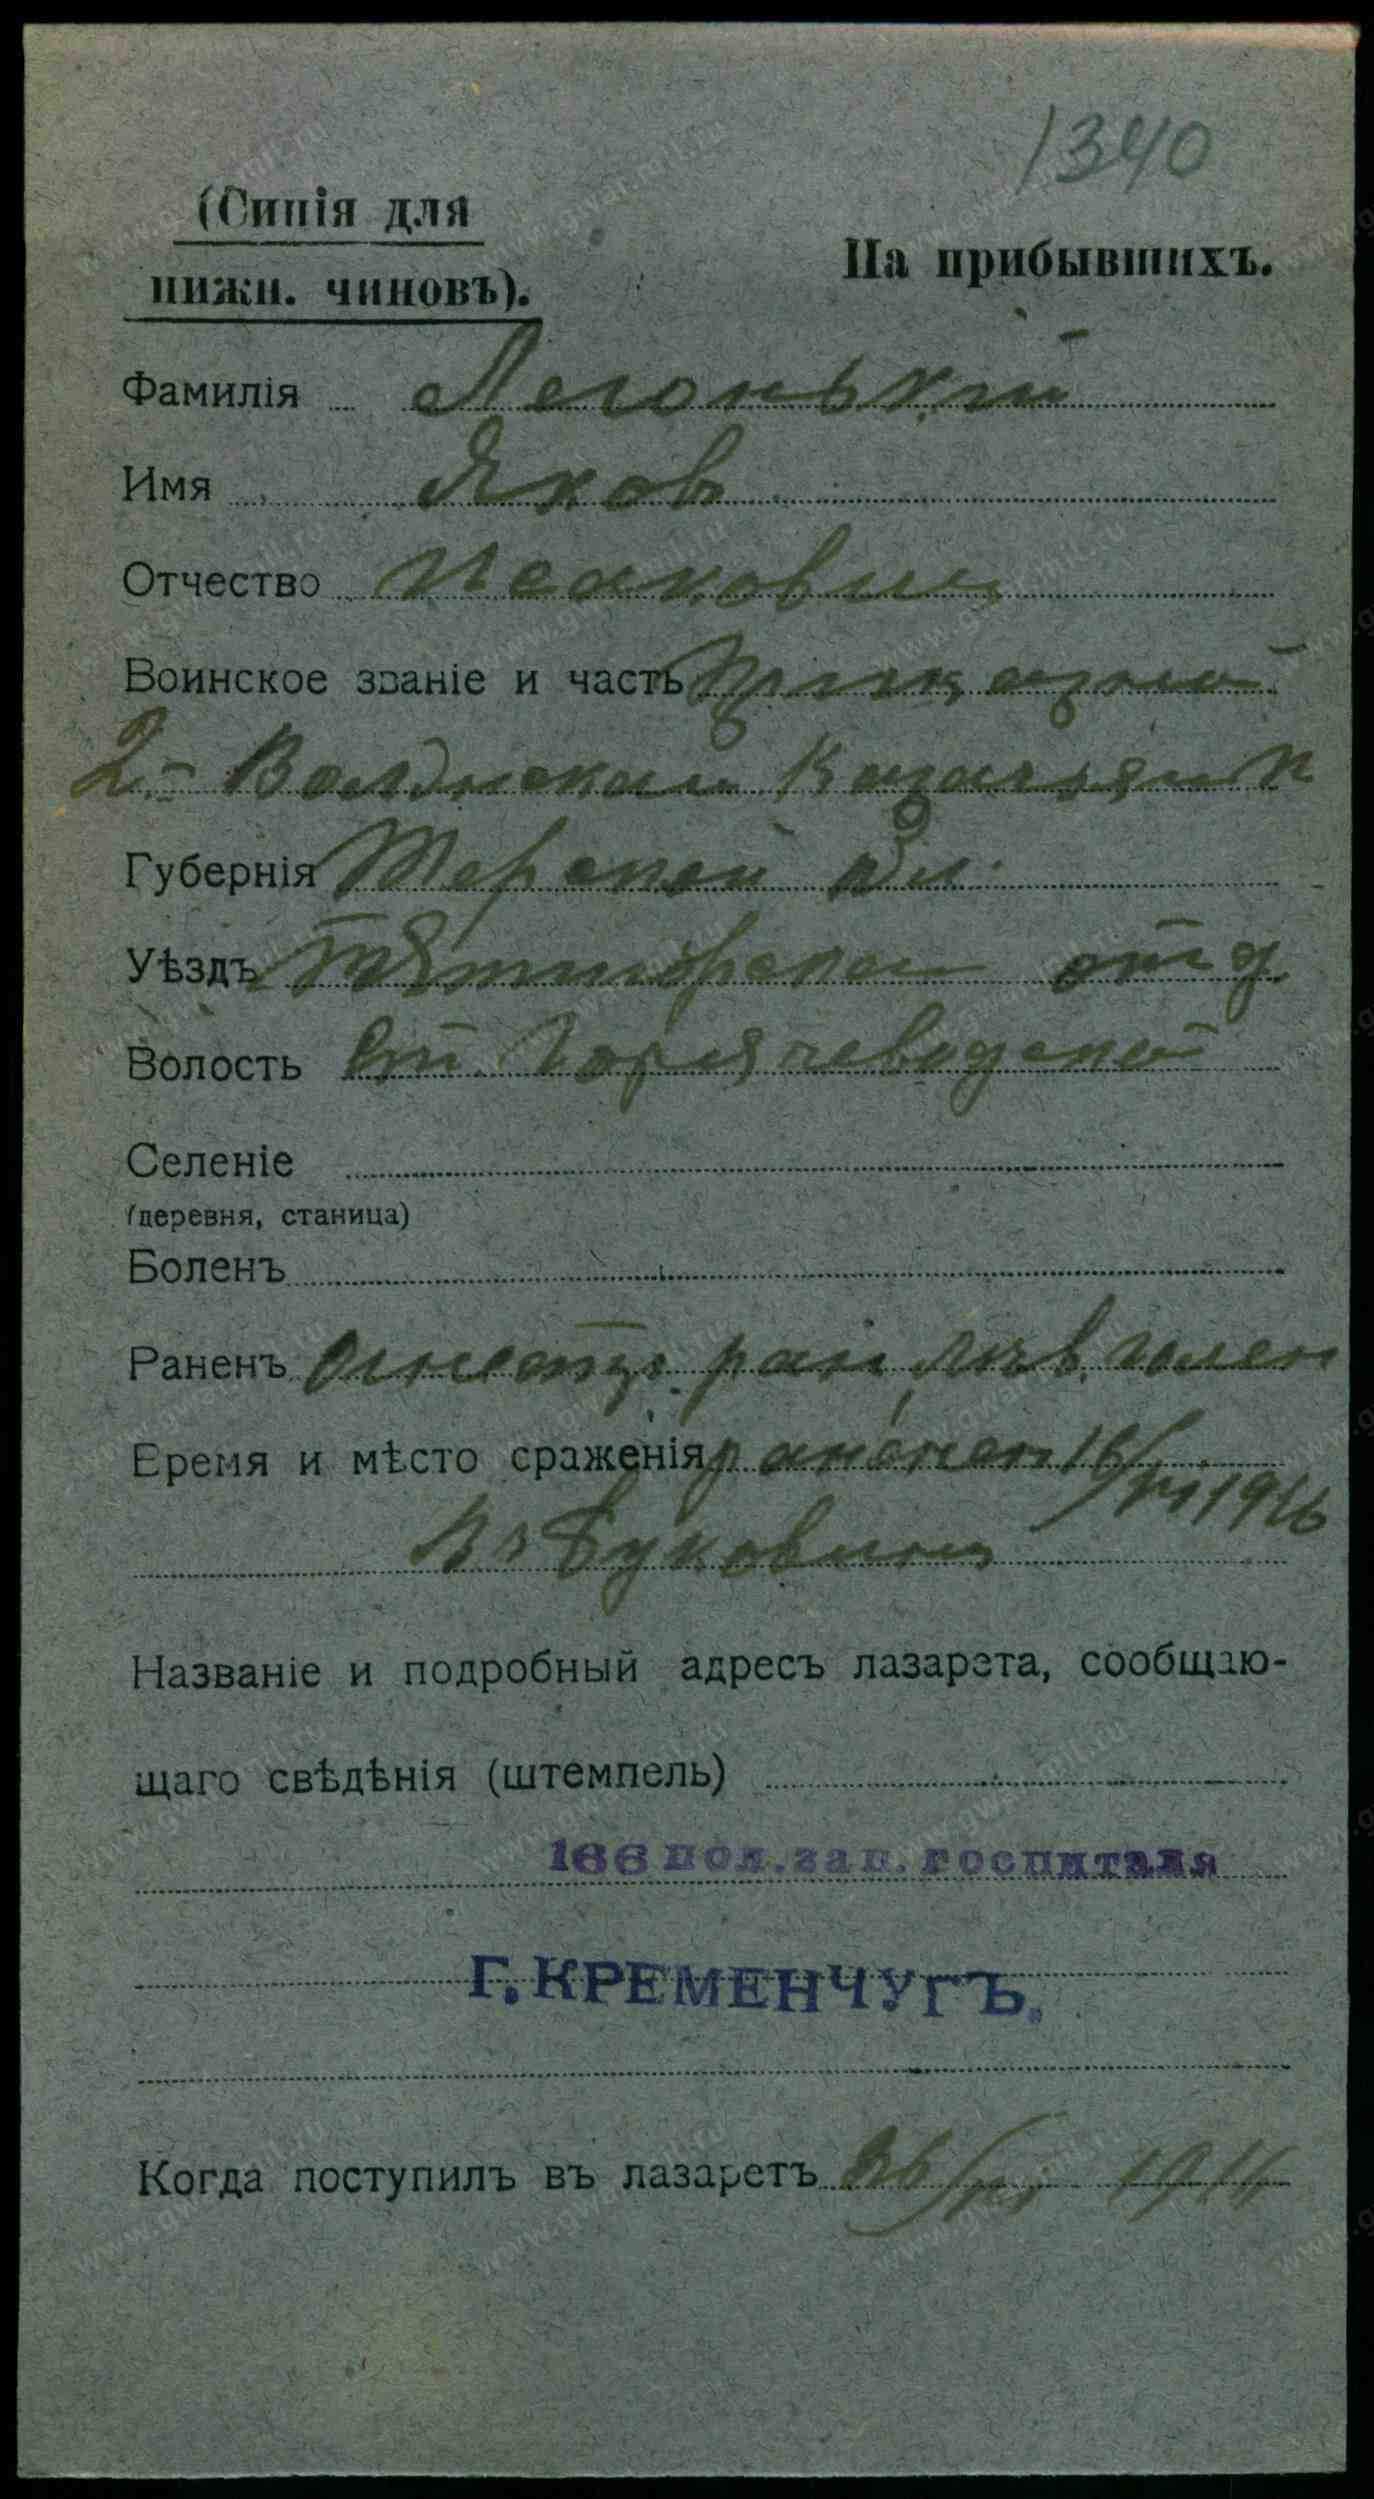 1340
(Синія для
нижн. чиновъ).
На прибывшихъ.
Фамилія Легонькій
Имя Яков
Отчество Исаковичъ
Воинское званіе и часть приказной
2й Волгскаго Казачьяго п
Губернія Терской обл.
Уѣздъ Пятигорскаго отд
Волость Ст. Горячеводской
Селеніе
(деревня, станица)
Боленъ
Раненъ огнестр. ран лѣв. голен
Время и мѣсто сраженія ранен 16/ 1916
Въ Буковинѣ
Названіе и подробный адресъ лазарета, сообщаю-
щаго свѣдѣнія (штемпель)
166 пол. зап. госпиталя
Г. КРЕМЕНЧУГЪ.
Когда поступилъ въ лазаретъ